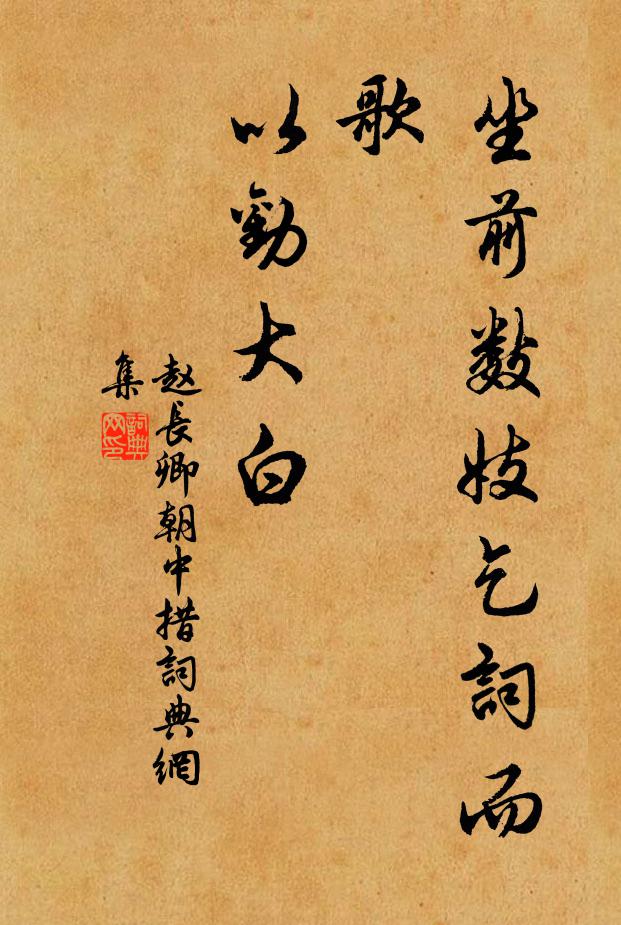 坐前數妓乞詞而
歌
以勸大白
赵長卿朝中措詞典網
集
詞典
网印